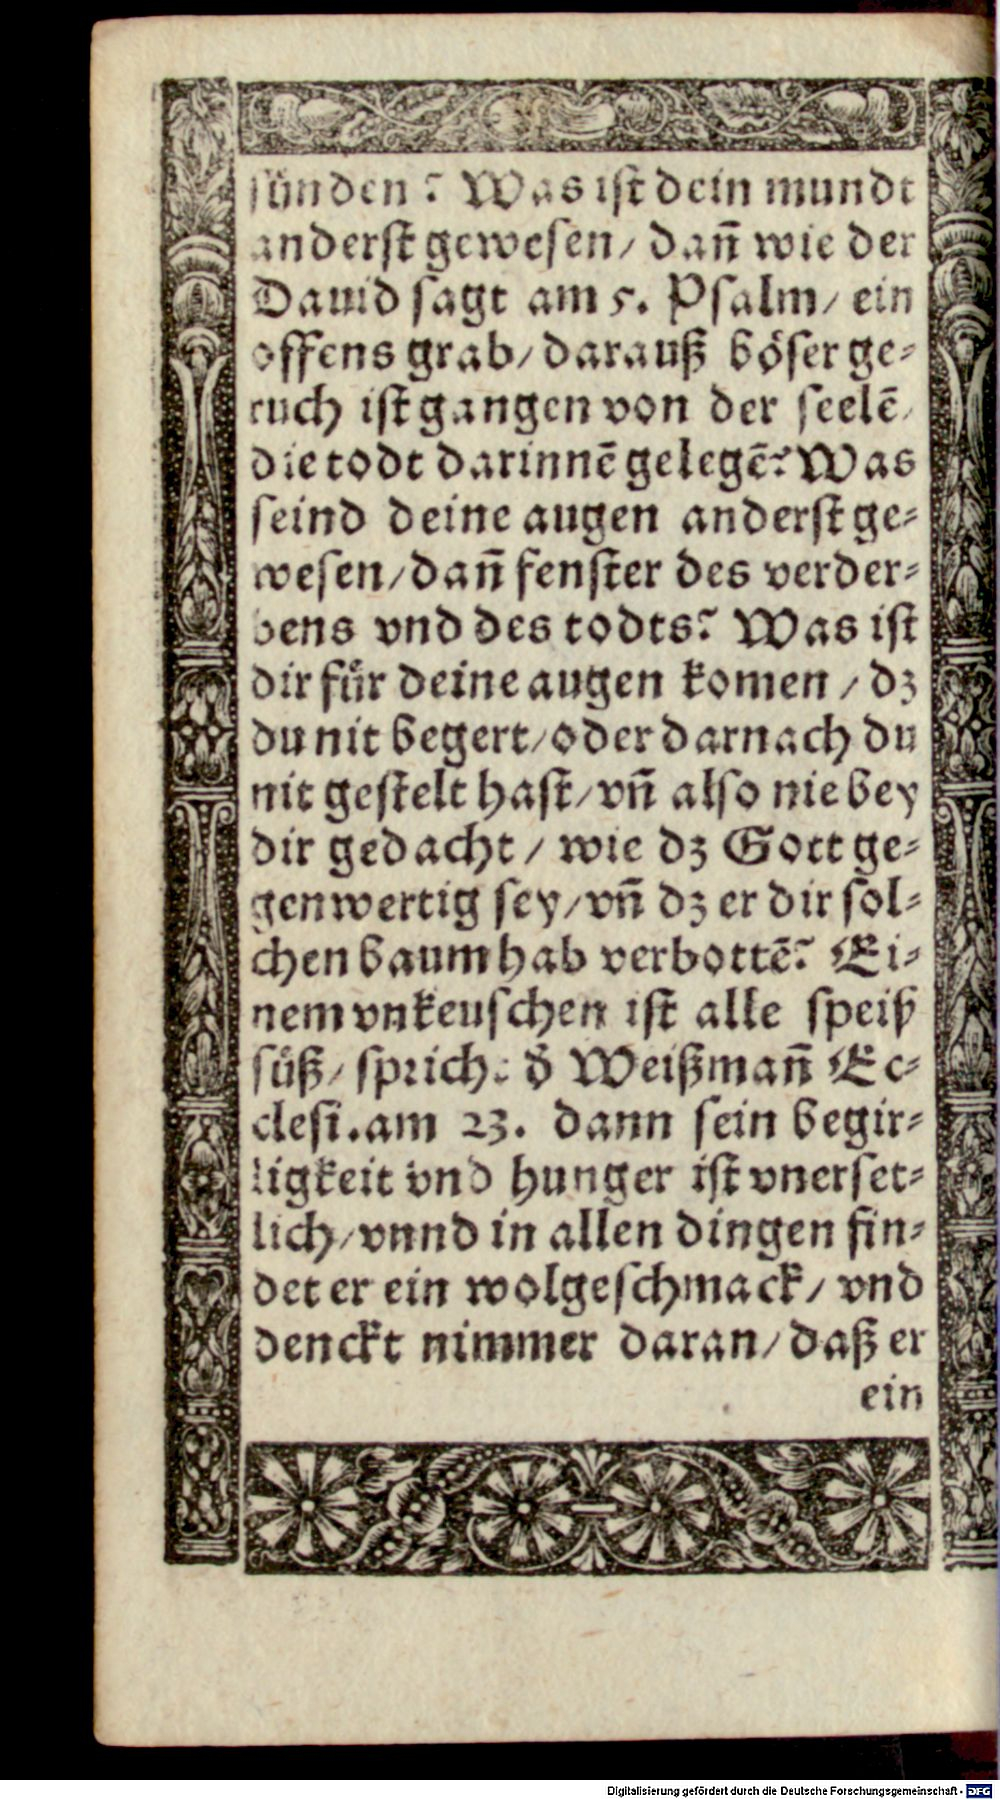 sünden? Was ist dein mundt
anderst gewesen/ dañ wie der
Dauid sagt am 5. Psalm/ ein
offens grab/ darauß böser ge-
ruch ist gangen von der seelē/
die todt darinnē gelegē? Was
seind deine augen anderst ge-
wesen/ dañ fenster des verder-
bens vnd des todts? Was ist
dir für deine augen komen / dz
du nit begert/ oder darnach du
nit gestelt hast/ vñ also nie bey
dir gedacht / wie dz Gott ge-
genwertig sey/ vñ dz er dir sol-
chen baum hab verbottē? Ei-
nem vnkeuschen ist alle speiß
süß/ spricht d̄ Weißmañ Ec-
clesi. am 23. dann sein begir-
ligkeit vnd hunger ist vnerset-
lich/ vnnd in allen dingen fin-
det er ein wolgeschmack/ vnd
denckt nimmer daran/ daß er
ein
Digitalisierung gefördert durch die Deutsche Forschungsgemeinschaft - DFG